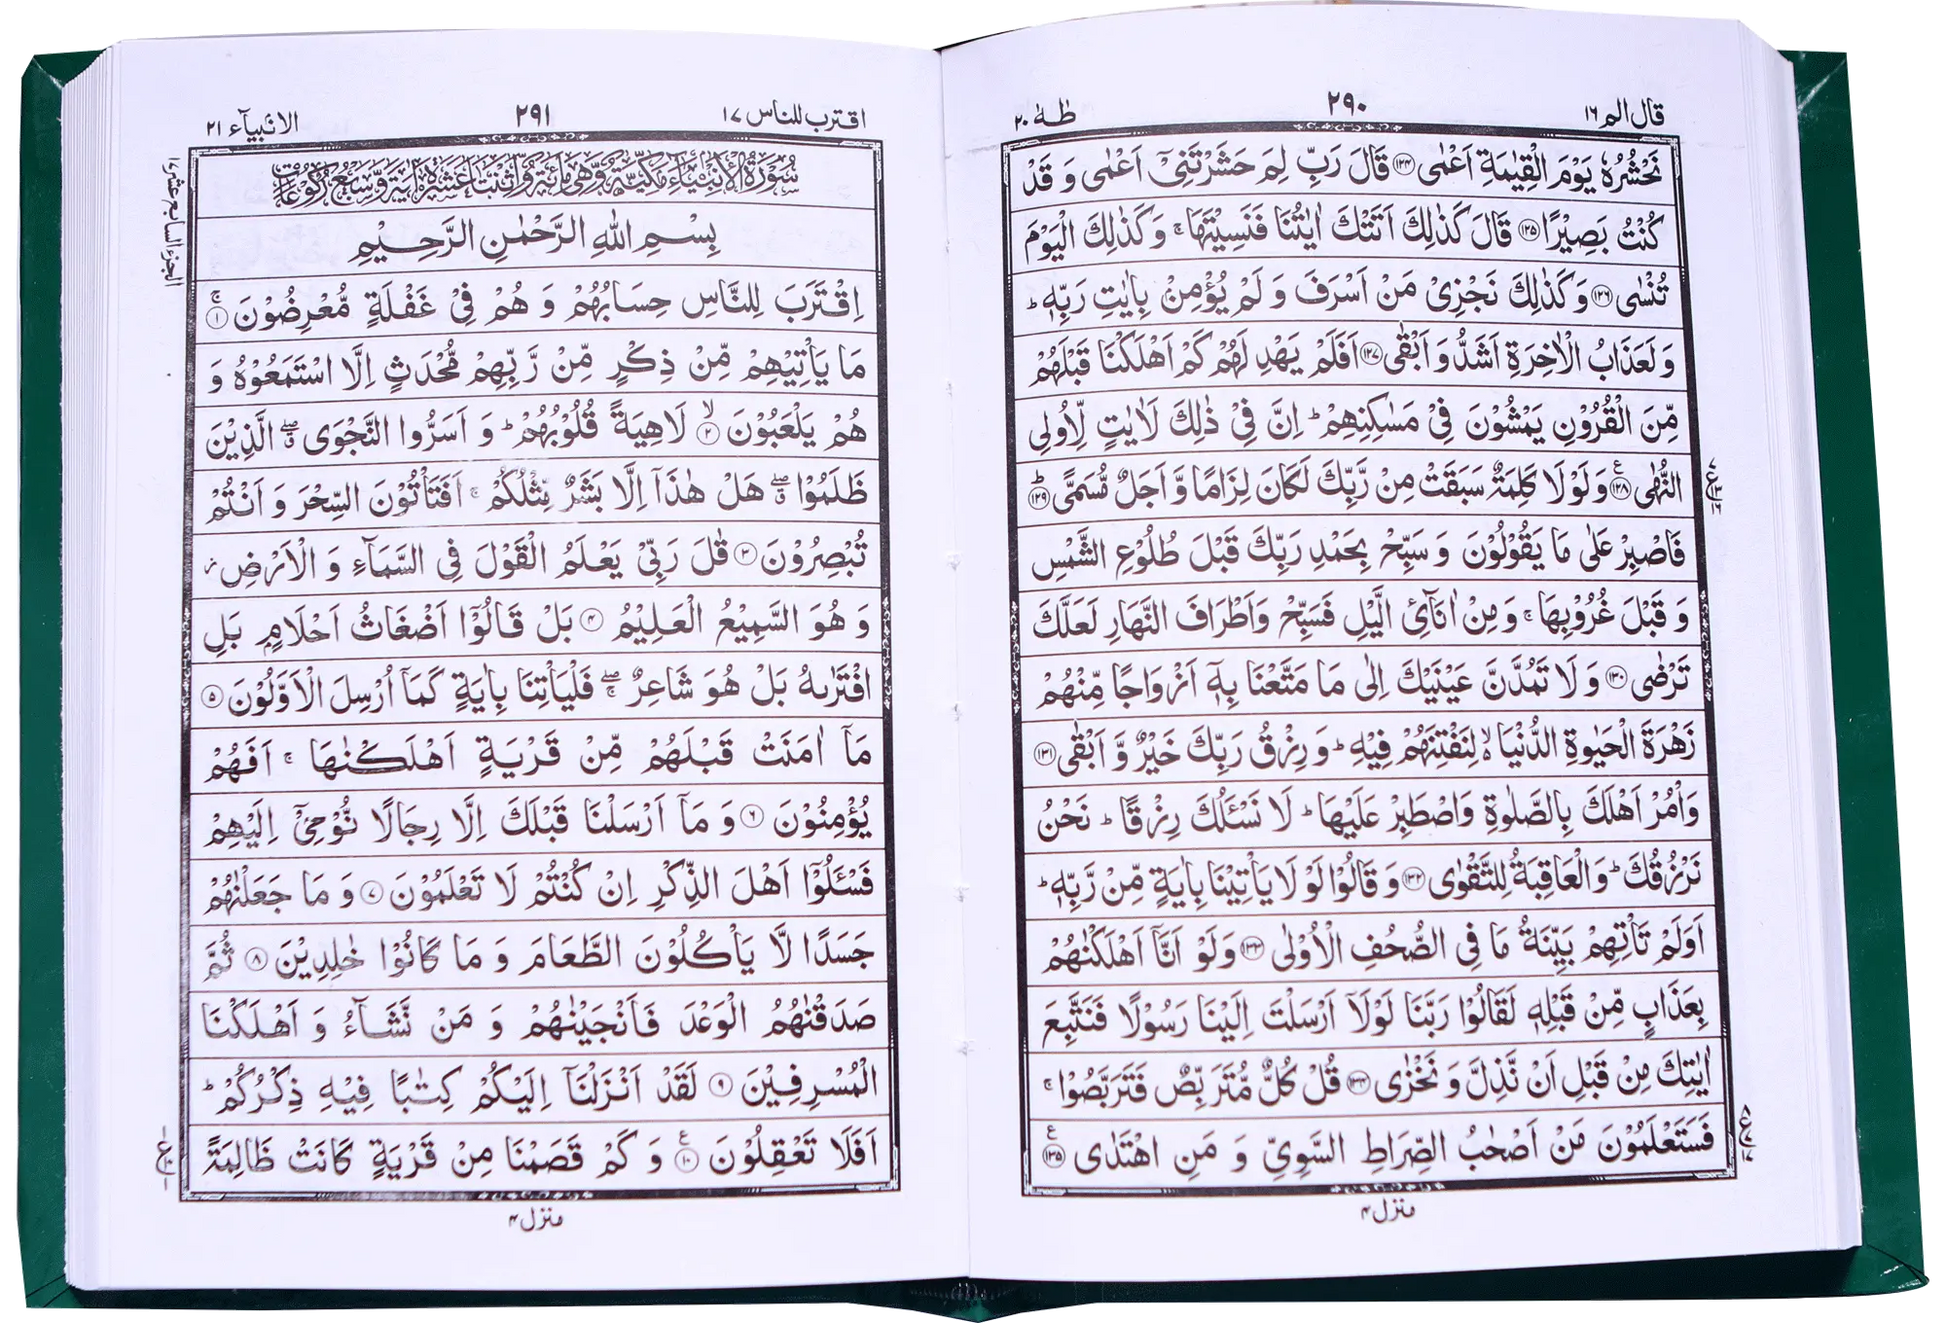 قال الم ١٦
٢٩٠
طٰهٰ ٢٠
نَحْشُرُهٗ يَوْمَ الْقِيٰمَةِ اَعْمٰى ﴿۱۲۴﴾ قَالَ رَبِّ لِمَ حَشَرْتَنِىْٓ اَعْمٰى وَ قَدْ
كُنْتُ بَصِيْرًا ﴿۱۲۵﴾ قَالَ كَذٰلِكَ اَتَتْكَ اٰيٰتُنَا فَنَسِيْتَهَا ۚ وَكَذٰلِكَ الْيَوْمَ
تُنْسٰى ﴿۱۲۶﴾ وَكَذٰلِكَ نَجْزِىْ مَنْ اَسْرَفَ وَ لَمْ يُؤْمِنْ بِاٰيٰتِ رَبِّهٖ ؕ
وَ لَعَذَابُ الْاٰخِرَةِ اَشَدُّ وَ اَبْقٰى ﴿۱۲۷﴾ اَفَلَمْ يَهْدِ لَهُمْ كَمْ اَهْلَكْنَا قَبْلَهُمْ
مِّنَ الْقُرُوْنِ يَمْشُوْنَ فِىْ مَسٰكِنِهِمْ ؕ اِنَّ فِىْ ذٰلِكَ لَاٰيٰتٍ لِّاُولِى
النُّهٰى ﴿۱۲۸﴾ وَلَوْ لَا كَلِمَةٌ سَبَقَتْ مِنْ رَّبِّكَ لَكَانَ لِزَامًا وَّ اَجَلٌ مُّسَمًّى ؕ ﴿۱۲۹﴾
فَاصْبِرْ عَلٰى مَا يَقُوْلُوْنَ وَ سَبِّحْ بِحَمْدِ رَبِّكَ قَبْلَ طُلُوْعِ الشَّمْسِ
وَ قَبْلَ غُرُوْبِهَا ۚ وَ مِنْ اٰنَآئِ الَّيْلِ فَسَبِّحْ وَاَطْرَافَ النَّهَارِ لَعَلَّكَ
تَرْضٰى ﴿۱۳۰﴾ وَ لَا تَمُدَّنَّ عَيْنَيْكَ اِلٰى مَا مَتَّعْنَا بِهٖٓ اَزْوَاجًا مِّنْهُمْ
زَهْرَةَ الْحَيٰوةِ الدُّنْيَا ۙ لِنَفْتِنَهُمْ فِيْهِ ؕ وَ رِزْقُ رَبِّكَ خَيْرٌ وَّ اَبْقٰى ﴿۱۳۱﴾
وَاْمُرْ اَهْلَكَ بِالصَّلٰوةِ وَاصْطَبِرْ عَلَيْهَا ؕ لَا نَسْـَٔلُكَ رِزْقًا ؕ نَحْنُ
نَرْزُقُكَ ؕ وَالْعَاقِبَةُ لِلتَّقْوٰى ﴿۱۳۲﴾ وَ قَالُوْا لَوْ لَا يَاْتِيْنَا بِاٰيَةٍ مِّنْ رَّبِّهٖ ؕ
اَوَلَمْ تَاْتِهِمْ بَيِّنَةُ مَا فِى الصُّحُفِ الْاُوْلٰى ﴿۱۳۳﴾ وَلَوْ اَنَّاۤ اَهْلَكْنٰهُمْ
بِعَذَابٍ مِّنْ قَبْلِهٖ لَقَالُوْا رَبَّنَا لَوْلَاۤ اَرْسَلْتَ اِلَيْنَا رَسُوْلًا فَنَتَّبِعَ
اٰيٰتِكَ مِنْ قَبْلِ اَنْ نَّذِلَّ وَ نَخْزٰى ﴿۱۳۴﴾ قُلْ كُلٌّ مُّتَرَبِّصٌ فَتَرَبَّصُوْا ۚ
فَسَتَعْلَمُوْنَ مَنْ اَصْحٰبُ الصِّرَاطِ السَّوِىِّ وَ مَنِ اهْتَدٰى ﴿۱۳۵﴾
منزل ۴
اقترب للناس ١٧
٢٩١
الانبيآء ٢١
سُوْرَةُ الْاَنْۢبِيَآءِ مَكِّيَّةٌ وَّهِىَ مِائَةٌ وَّاثْنَتَا عَشْرَةَ اٰيَةً وَّسَبْعُ رُكُوْعَاتٍ
بِسْمِ اللّٰهِ الرَّحْمٰنِ الرَّحِيْمِ
اِقْتَرَبَ لِلنَّاسِ حِسَابُهُمْ وَ هُمْ فِىْ غَفْلَةٍ مُّعْرِضُوْنَ ۚ ﴿۱﴾
مَا يَاْتِيْهِمْ مِّنْ ذِكْرٍ مِّنْ رَّبِّهِمْ مُّحْدَثٍ اِلَّا اسْتَمَعُوْهُ وَ
هُمْ يَلْعَبُوْنَ ۙ ﴿۲﴾ لَاهِيَةً قُلُوْبُهُمْ ؕ وَ اَسَرُّوا النَّجْوَى ۖۗ الَّذِيْنَ
ظَلَمُوْا ۖۗ هَلْ هٰذَآ اِلَّا بَشَرٌ مِّثْلُكُمْ ۚ اَفَتَاْتُوْنَ السِّحْرَ وَ اَنْتُمْ
تُبْصِرُوْنَ ﴿۳﴾ قٰلَ رَبِّىْ يَعْلَمُ الْقَوْلَ فِى السَّمَآءِ وَ الْاَرْضِ ؗ
وَ هُوَ السَّمِيْعُ الْعَلِيْمُ ﴿۴﴾ بَلْ قَالُوْٓا اَضْغَاثُ اَحْلَامٍ بَلِ
افْتَرٰىهُ بَلْ هُوَ شَاعِرٌ ۖۚ فَلْيَاْتِنَا بِاٰيَةٍ كَمَآ اُرْسِلَ الْاَوَّلُوْنَ ﴿۵﴾
مَآ اٰمَنَتْ قَبْلَهُمْ مِّنْ قَرْيَةٍ اَهْلَكْنٰهَا ۚ اَفَهُمْ
يُؤْمِنُوْنَ ﴿۶﴾ وَ مَآ اَرْسَلْنَا قَبْلَكَ اِلَّا رِجَالًا نُّوْحِىْٓ اِلَيْهِمْ
فَسْـَٔلُوْٓا اَهْلَ الذِّكْرِ اِنْ كُنْتُمْ لَا تَعْلَمُوْنَ ﴿۷﴾ وَ مَا جَعَلْنٰهُمْ
جَسَدًا لَّا يَاْكُلُوْنَ الطَّعَامَ وَ مَا كَانُوْا خٰلِدِيْنَ ﴿۸﴾ ثُمَّ
صَدَقْنٰهُمُ الْوَعْدَ فَاَنْجَيْنٰهُمْ وَ مَنْ نَّشَآءُ وَ اَهْلَكْنَا
الْمُسْرِفِيْنَ ﴿۹﴾ لَقَدْ اَنْزَلْنَآ اِلَيْكُمْ كِتٰبًا فِيْهِ ذِكْرُكُمْ ؕ
اَفَلَا تَعْقِلُوْنَ ﴿۱۰﴾ وَ كَمْ قَصَمْنَا مِنْ قَرْيَةٍ كَانَتْ ظَالِمَةً
منزل ۴
الجزء السابع عشر ١٧